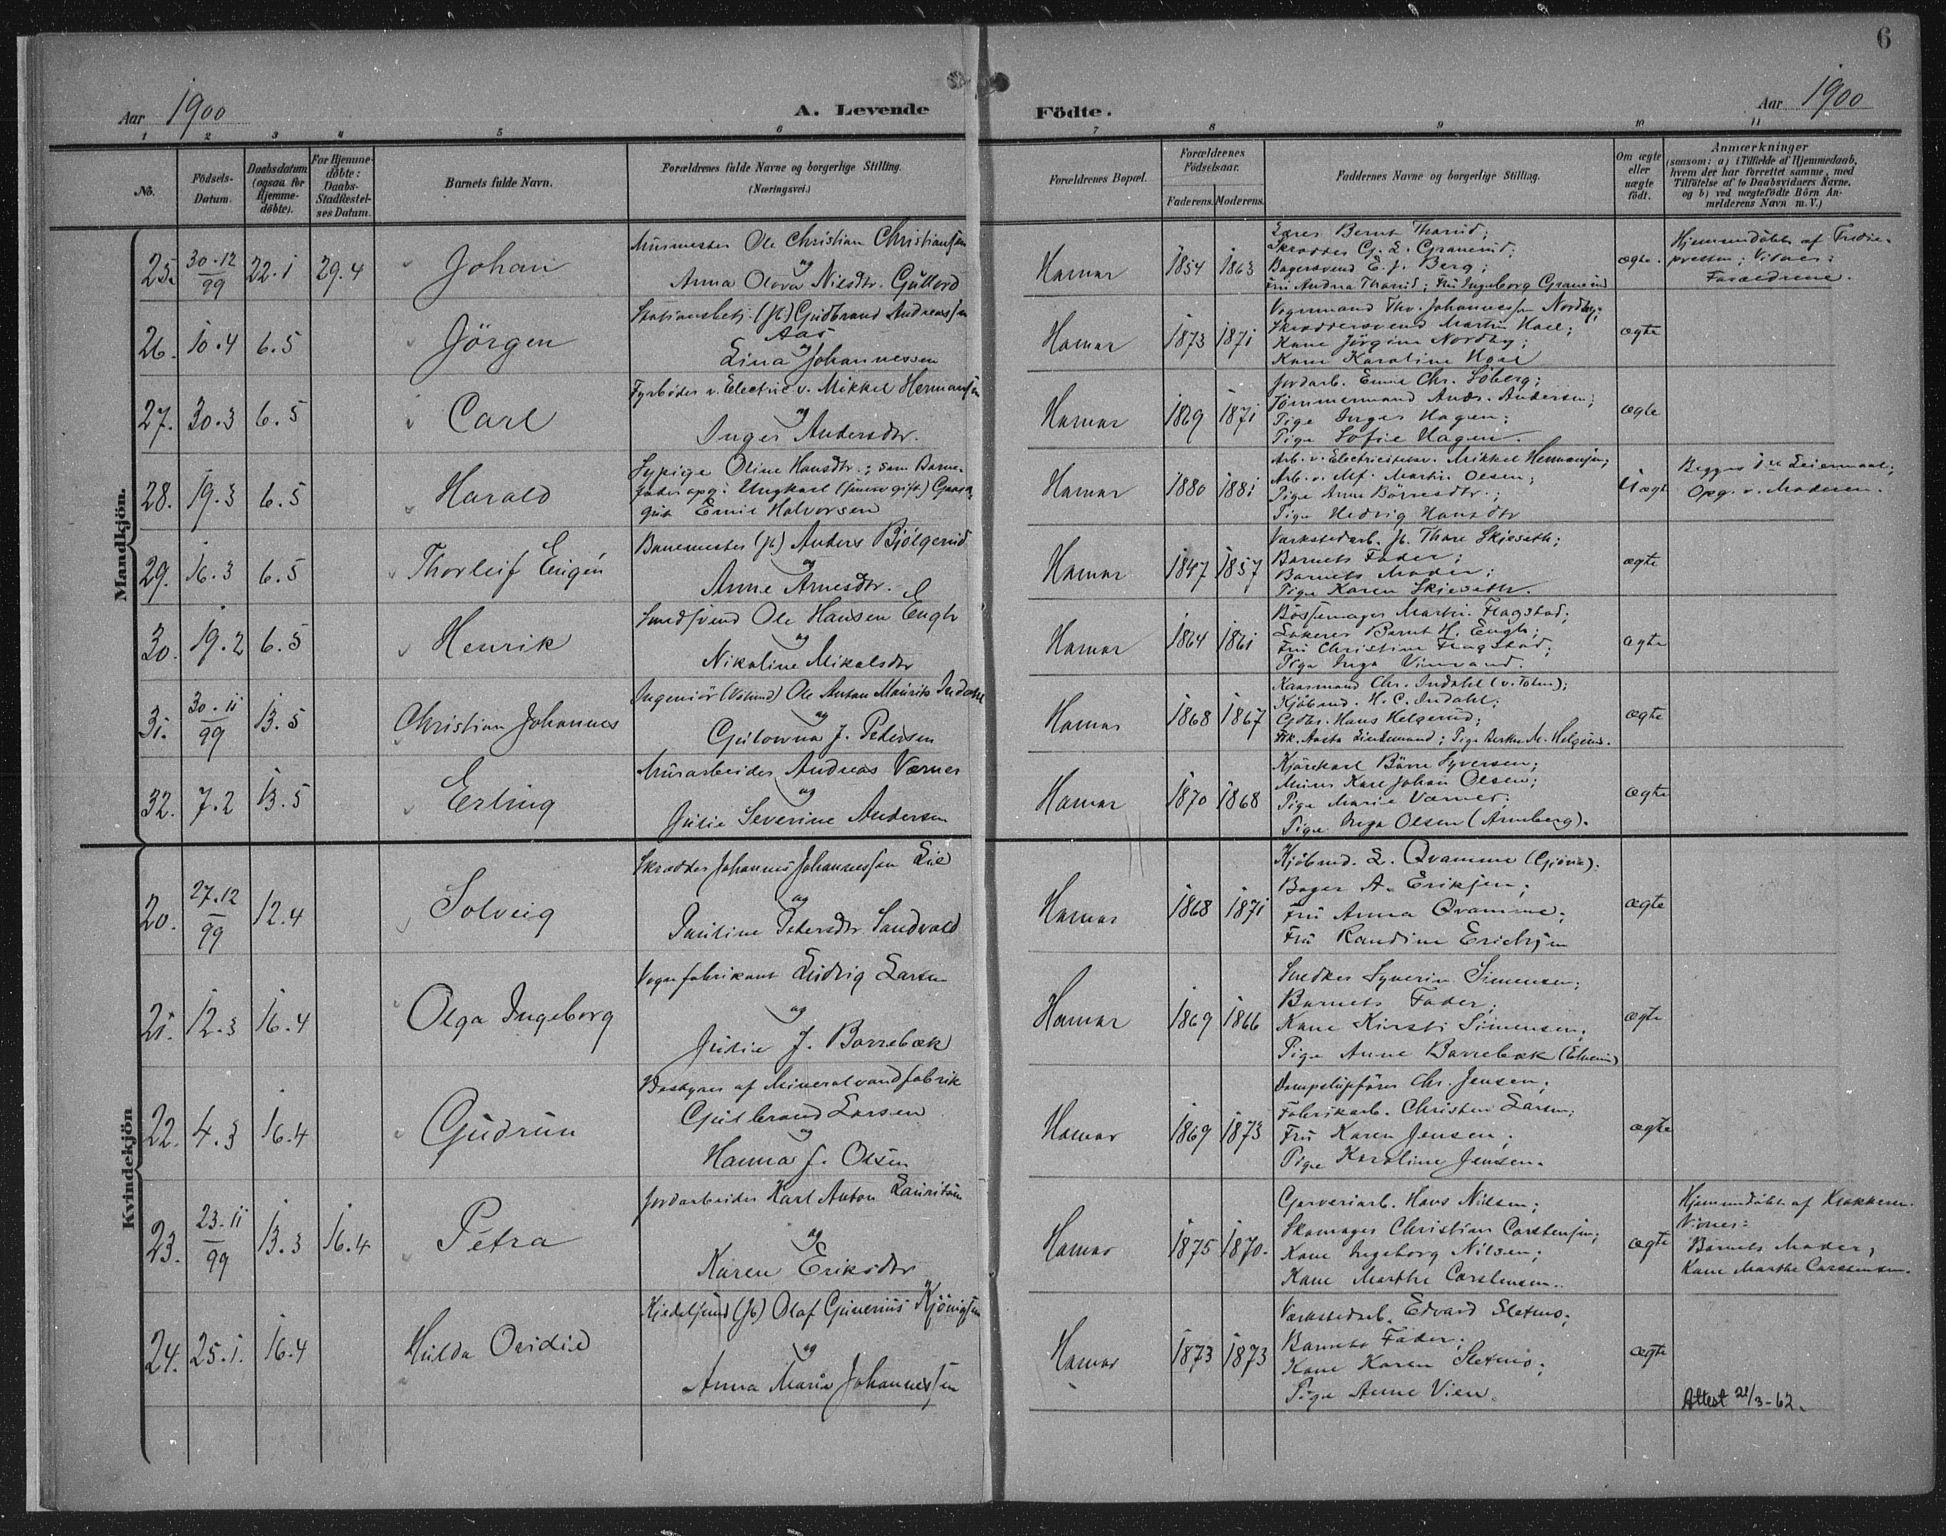 6
Aar 1900
A. Levende
Födte.
Aar 1900
1 2 3 4 5 6 7 8 9 10 11
No.
Födsels-Datum.
Daabsdatum (ogsaa for Hjemmedöbte).
For Hjemmedöbte: Daabs-Stadfæstelses Datum.
Barnets fulde Navn.
Forældrenes fulde Navne og borgerlige Stilling. (Næringsvei.)
Forældrenes Bopæl.
Forældrenes Födselsaar.
Faderens. Moderens.
Faddernes Navne og borgerlige Stilling.
Om ægte eller uægte födt.
Anmærkninger
(saasom: a) i Tilfælde af Hjemmedaab, hvem der har forrettet samme, med Tilföielse af to Daabsvidners Navne, og b) ved uægtefödte Börn Anmelderens Navn m. V.)
Mandkjön.
25. 30-12/99 22.1 29.4 Johan
Murmester Ole Christian Christiansen
og
Anna Olova Nilsdtr. Gullord
Hamar 1854 1863
Lærer Bernt Thorud;
Skrædder G. L. Granerud;
Bagersvend E. J. Berg;
Fru Andrea Thorud; Fru Ingeborg Granerud
ægte.
Hjemmedöbt af Frediepresten; Vidner:
Forældrene.
26. 10.4 6.5 Jörgen
Stationsbetj. (Jb) Gudbrand Andreassen
Aas
og
Lina Johannessen
Hamar 1873 1871
Vognmand Thv. Johannessen Nordby;
Skræddersvend Martin Hoel;
Kone Jörgine Nordby;
Kone Karoline Hoel
ægte
27. 30.3 6.5 Carl
Fyrböder v. Electric.v. Mikkel Hermansen
og
Inger Andersdtr.
Hamar 1869 1871
Jordarb. Emil Chr. Söberg;
Tömmermand Ands. Andersen;
Pige Inger Hagen;
Pige Sofie Hagen.
ægte
28. 19.3 6.5 Harald
Sypige Oline Hansdtr.; som Barnefader opg.: Ungkarl (senere gift) Gaardgut Emil Halvorsen
Hamar 1880 1881
Arb. v. Electricitetsv. Mikkel Hermansen;
Arb. v. Mf. Martin Olsen;
Pige Anne Börresdtr.;
Pige Hedvig Hansdtr
Uægte
Begges 1ste Leiermaal;
Opg. v. Moderen.
29. 16.3 6.5 Thorleif Eugén
Banemester (Jb) Anders Bjölgerud
og
Anne Arnesdtr.
Hamar 1847 1857
Værkstedarb. Jb. Thore Skjeseth;
Barnets Fader;
Barnets Moder;
Pige Karen Skjeseth.
ægte
30. 19.2 6.5 Henrik
Smedsvend Ole Hansen Engh
og
Nikoline Mikalsdtr
Hamar 1864 1861
Bössemager Martin Flagstad;
Bernt H. Engh;
Fru Christine Flagstad;
Pige Inga
ægte
31. 30-11/99 13.5 Christian Johannes
Ingeniör Ole Anton Mauritz Indahl
og
Gulowna J. Petersen
Hamar 1868 1867
Chr. Indahl (v. Toten);
Kjöbmd. H. C. Indahl;
Gdbr. Hans Helgerud;
Frk. Aasta Lindemand; Pige Berthe M. Helgerud.
ægte
32. 7.2 13.5 Erling
Murarbeider Andreas Værner
og
Julie Severine Andersen
Hamar 1870 1868
Kjörekarl Börre Syversen;
Murer Karl Johan Olsen;
Pige Marie Værner;
Pige Inga Olsen (Arneberg).
ægte
Kvindekjön
20. 27-12/99 12.4 Solveig
Skrædder Johannes Johannessen Lie
og
Pauline Petersdtr Sandvold
Hamar 1868 1871
Kjöbmd. L. Qvamme (Gjövik).
Bager A. Eriksen;
Fru Anna Qvamme;
Fru Randine Erichsen
ægte
21. 12.3 16.4 Olga Ingeborg
Vognfabrikant Ludvig Larsen
og
Julie J. Borrebæk
Hamar 1869 1866
Snedker Syverin Simensen;
Barnets Fader;
Kone Kirsti Simensen;
Pige Anne Borrebæk (Elverum)
ægte
22. 4.3 16.4 Gudrun
Bestyrer af Mineralvandfabrik
Gulbrand Larsen
og
Hanna J. Olsen
Hamar 1869 1873
Dampskipförer Chr. Jensen;
Fabrikarb. Christen Larsen;
Fru Karen Jensen;
Pige Karoline Jensen.
ægte
23. 23-11/99 13.3 16.4 Petra
Jordarbeider Karl Anton Lauritsen
og
Karen Eriksdtr
Hamar 1875 1870.
Garveriarb. Hans Nilsen;
Skomager Christian Carstensen;
Kone Ingeborg Nilsen;
Kone Marthe Carstensen.
ægte
Hjemmedöbt af Klokkeren
Vidner:
Barnets Moder,
Kone Marthe Carstensen.
24. 25.1. 16.4 Hulda Ovidie
Kjedelsmd (Jb) Olaf Gunerius Kjönigsen
og
Anna Marie Johannessen
Hamar 1873 1873
Værkstedarb. Edvard Sletmo;
Barnets Fader;
Kone Karen Sletmo;
Pige Anne Vien.
ægte
Attest 21/3-62.